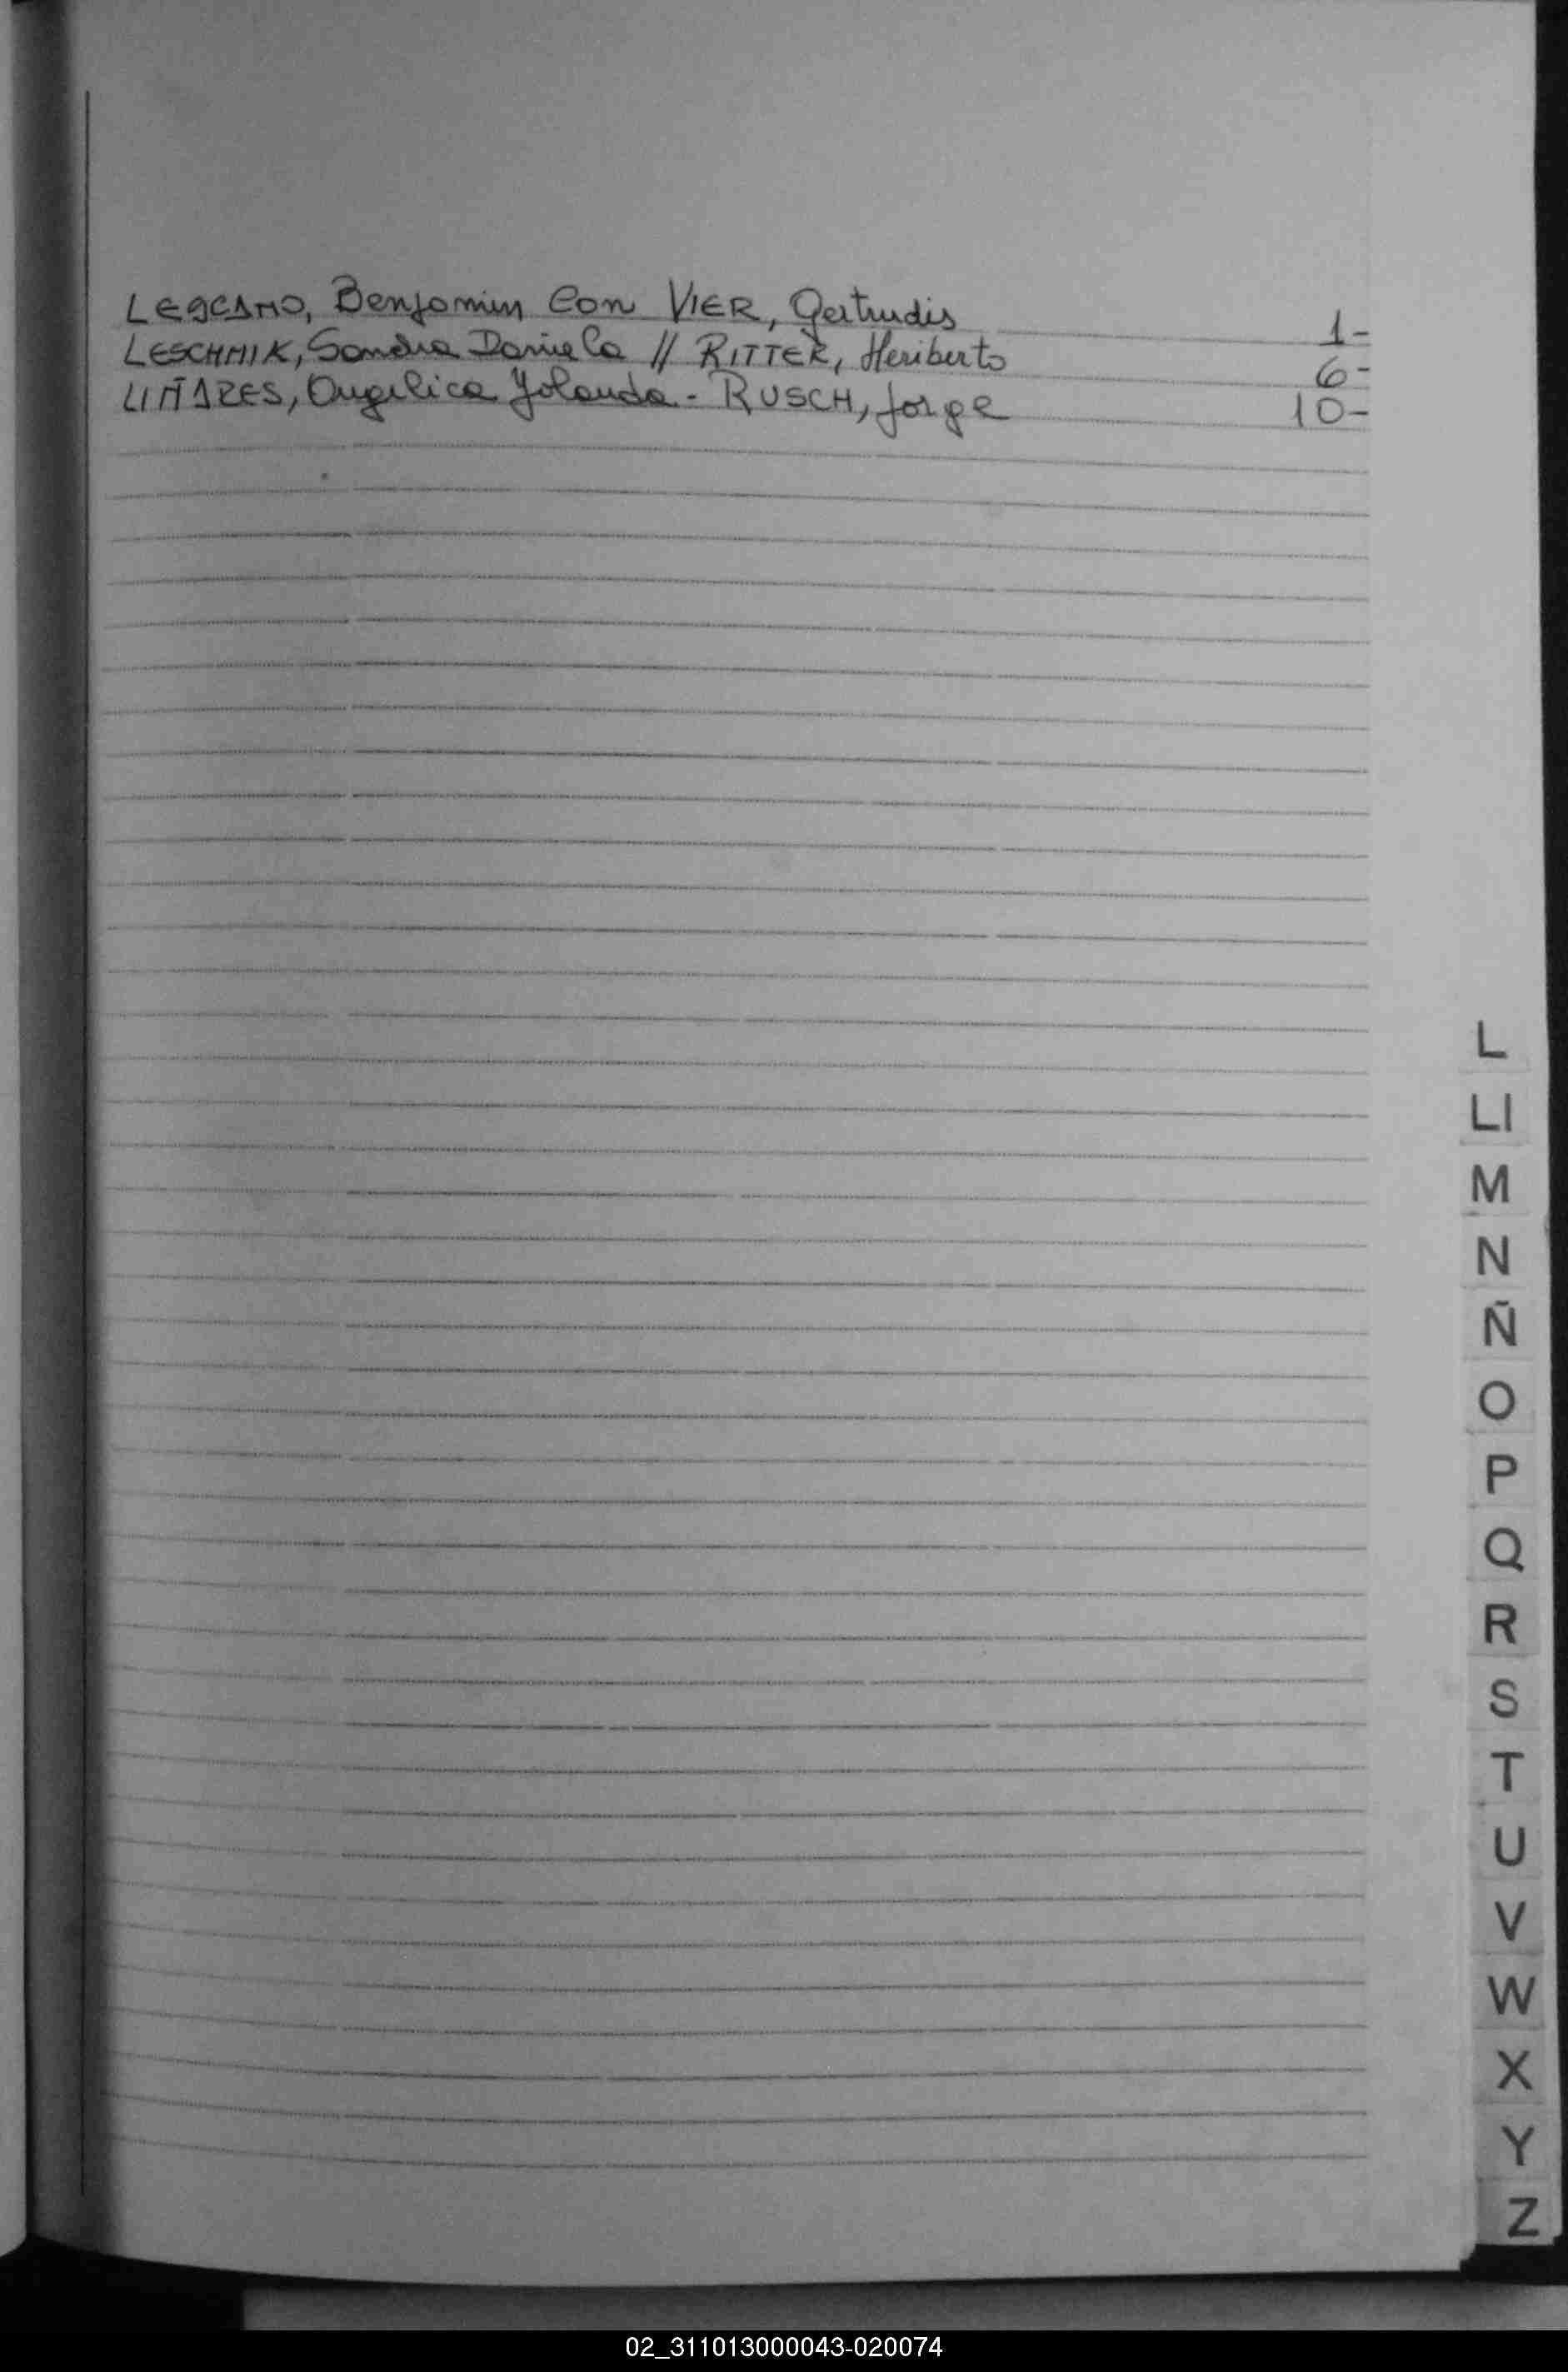 LEGCANO, Benjamin Con VIER, Gertrudis 1-
LESCHNIK, Sandra Daniela // RITTER, Heriberto 6-
LIÑARES, Angelica Yolanda - RUSCH, Jorge 10-
L
Ll
M
N
Ñ
O
P
Q
R
S
T
U
V
W
X
Y
Z
02_311013000043-020074